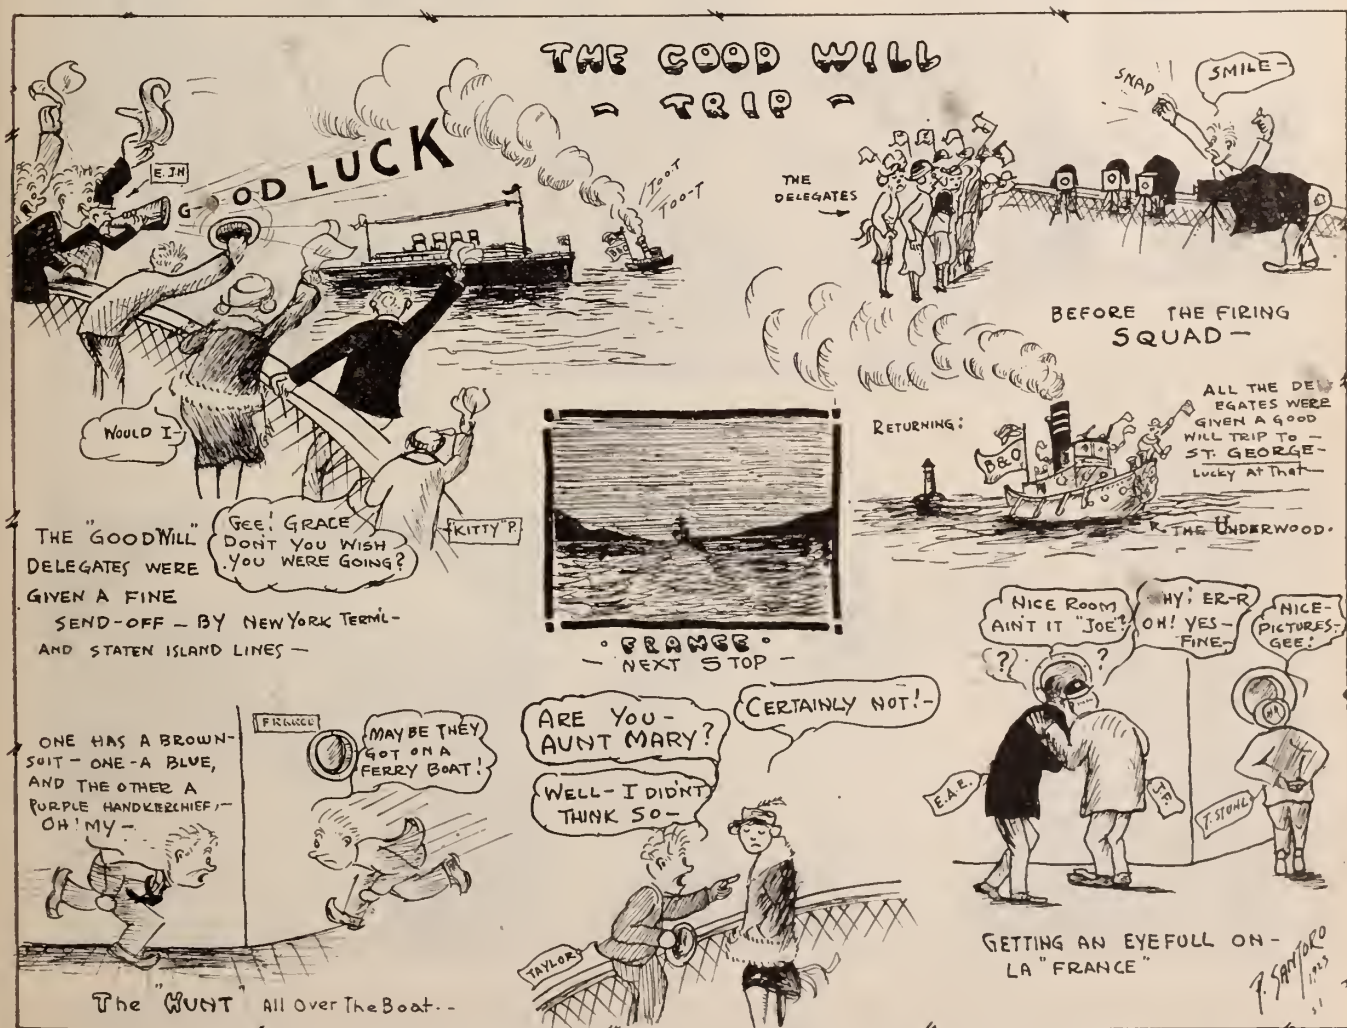 THE GOOD WILL
- TRIP -
E.J.H
GOOD LUCK
TOO-T
TOO-T
B&O
WOULD I-
GEE! GRACE
DON'T YOU WISH
YOU WERE GOING?
"KITTY" P.
THE "GOOD WILL"
DELEGATES WERE
GIVEN A FINE
SEND-OFF - BY NEW YORK TERM'L-
AND STATEN ISLAND LINES -
THE
DELEGATES
SNAP
SMILE-
BEFORE THE FIRING
SQUAD-
RETURNING:
ALL THE DEL
EGATES WERE
GIVEN A GOOD
WILL TRIP TO -
ST. GEORGE-
Lucky At That-
B&O
THE UNDERWOOD.
· FRANCE ·
- NEXT STOP -
ONE HAS A BROWN-
SUIT - ONE - A BLUE,
AND THE OTHER A
PURPLE HANDKERCHIEF,-
OH! MY-
FRANCE
MAYBE THEY
GOT ON A
FERRY BOAT!
The "HUNT" All Over The Boat--
ARE YOU-
AUNT MARY?
WELL- I DIDN'T
THINK SO-
CERTAINLY NOT!-
TAYLOR
NICE ROOM
AIN'T IT "JOE"?
WHY! ER-R
OH! YES-
FINE-
NICE-
PICTURES-
GEE!
?
?
E.A.E.
J.F.
HA
T. STOHL
GETTING AN EYEFULL ON-
LA "FRANCE"
P. SANTORO
1923